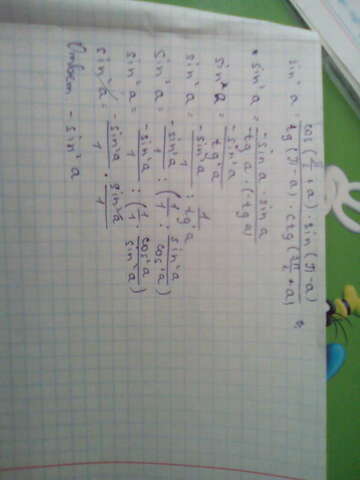 sin² a = cos(π/2 + a) · sin(π-a) / tg(π-a) · ctg(3π/2 + a)
• sin² a = -sin a · sin a / tg a · (tg a)
sin² a = -sin² a / tg² a
sin² a = -sin² a / 1 : 1 / tg² a
sin² a = -sin² a / 1 : (1/1 : sin² a / cos² a)
sin² a = -sin² a / 1 : (1/1 · cos² a / sin² a)
sin² a = -sin² a / 1 · sin² a / 1
Ответ: - sin² a